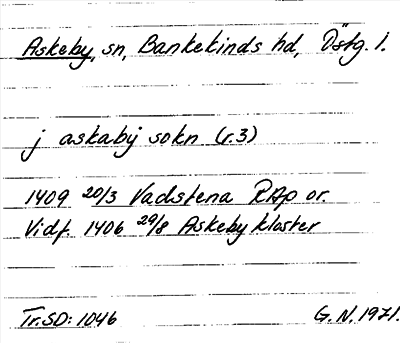 Askeby, sn, Bankekinds hd, Östg. l.
j askaby sokn (r.3)
1409 20/3 Vadstena RAp or.
Vidf. 1406 29/8 Askeby kloster
Tr.SD: 1046
G. N. 1971.